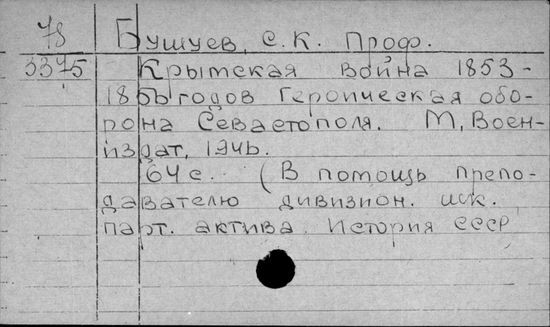 78 Бушуев, С.К. Проф.
3375 Крымская война 1853-
1856 годов Героическая обо-
рона Севастополя. М, Воен-
издат, 1946.
64 с. (В помощь препо-
давателю дивизион.
парт. актива. История СССР